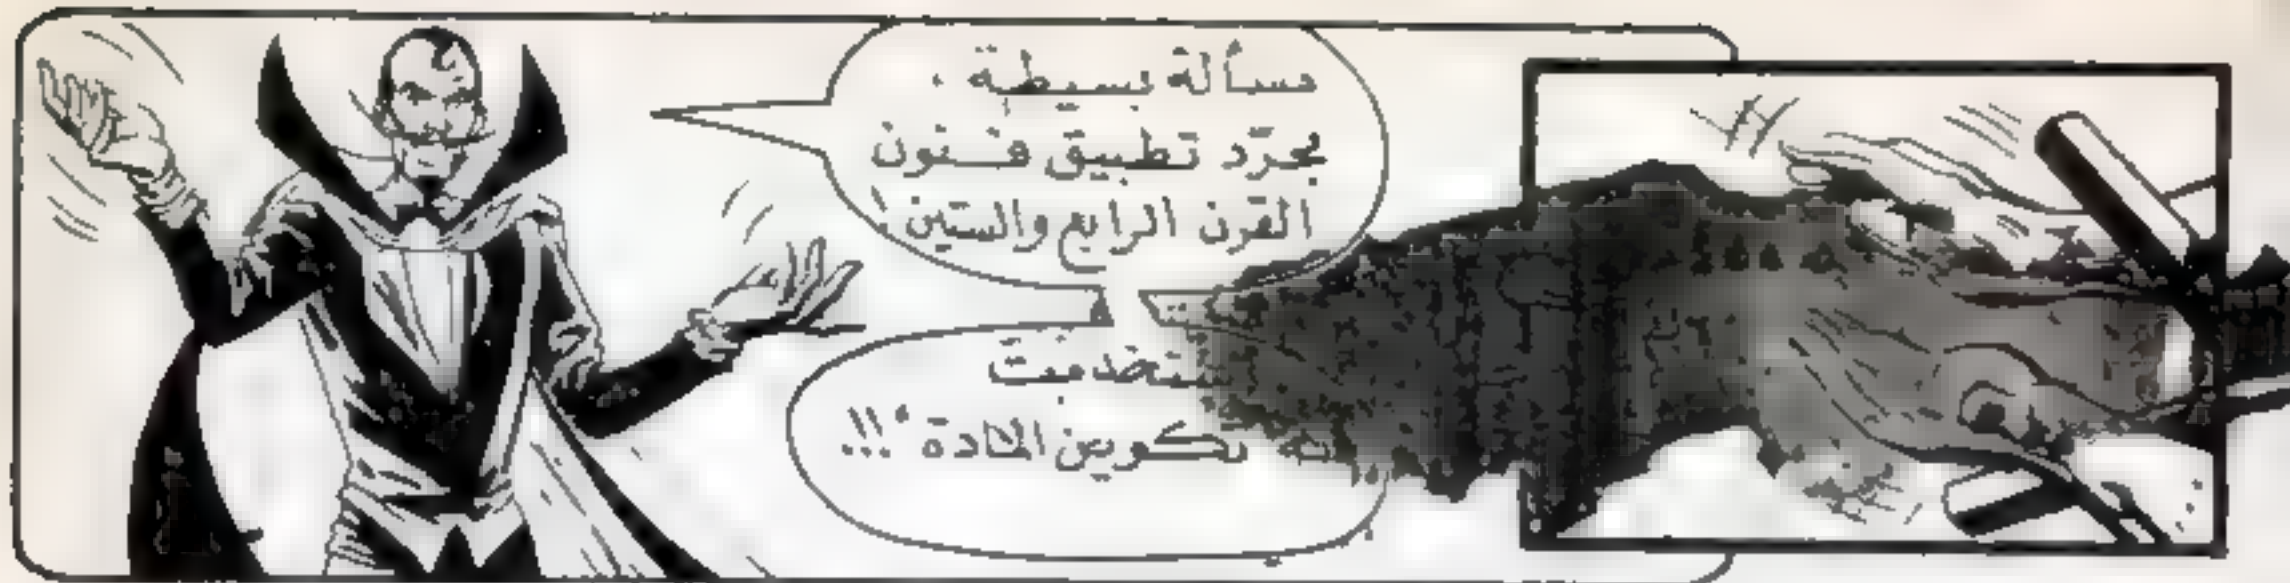 مسألة بسيطة .
مجرّد تطبيق فنون
القرن الرابع والستين !
تكوين المادة"!!.